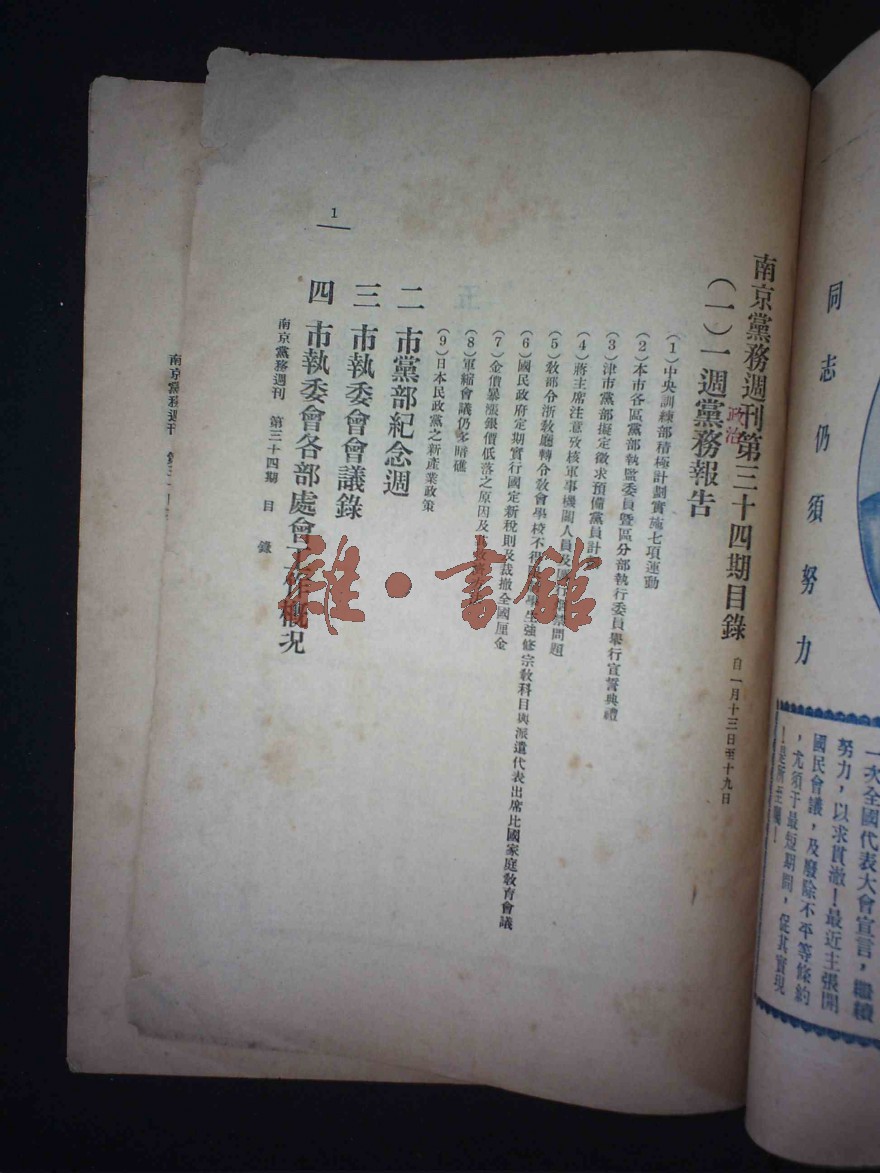 同志仍須努力
一次全國代表大會宣言，繼續
努力，以求貫澈！最近主張開
國民會議，及廢除不平等條約
，尤須于最短期間，促其實現
！是所至囑！
南京黨務週刊第三十四期目錄 自一月十三日至十九日
（一）一週黨務報告
政治
（1）中央訓練部積極計劃實施七項運動
（2）本市各區黨部執監委員曁區分部執行委員舉行宣誓典禮
（3）津市黨部擬定徵求預備黨員計
（4）蔣主席注意攷核軍事機關人員及 問題
（5）敎部令浙敎廳轉令敎會學校不得 學生強修宗敎科目與派遣代表出席比國家庭敎育會議
（6）國民政府定期實行國定新稅則及裁撤全國厘金
（7）金價暴漲銀價低落之原因及
（8）軍縮會議仍多暗礁
（9）日本民政黨之新產業政策
二 市黨部紀念週
三 市執委會會議錄
四 市執委會各部處會工作概况
南京黨務週刊 第三十四期 目錄
1
南京黨務週刊 第三
雜·書館